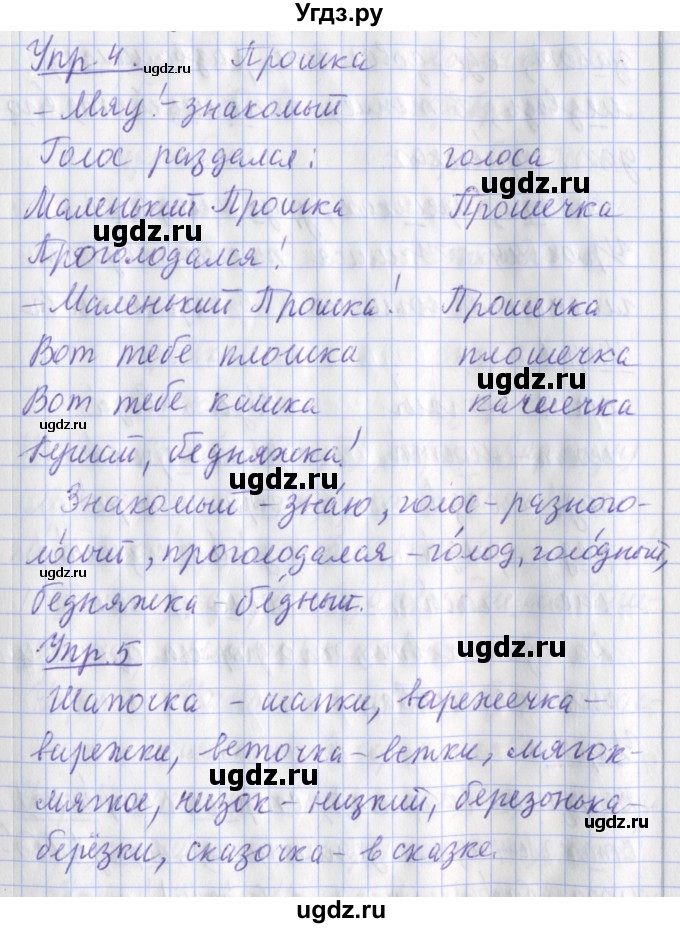 Угдз.ру
Упр. 4. Прошка
ugdz.ru
- Мяу! - знакомый
Голос раздался: голоса
ugdz.ru
Маленький Прошка Прошечка
ugdz.ru
Проголодался!
- Маленький Прошка! Прошечка
Вот тебе плошка плошечка
ugdz.ru
Вот тебе кашка качшечка
ugdz.ru
Кушай, бедняжка!
ugdz.ru
Знакомый - зна́ю, голос - разного-
ло́сый, проголодалая - го́лод, голо́дный,
ugdz.ru
бедняжка - бе́дный.
Упр. 5
ugdz.ru
Шапочка - шапки, варежечка -
варежки, веточка - ветки, мягок -
ugdz.ru
мягкое, низок - низкий, березонька -
ugdz.ru
берёзки, сказочка - в сказке.
ugdz.ru